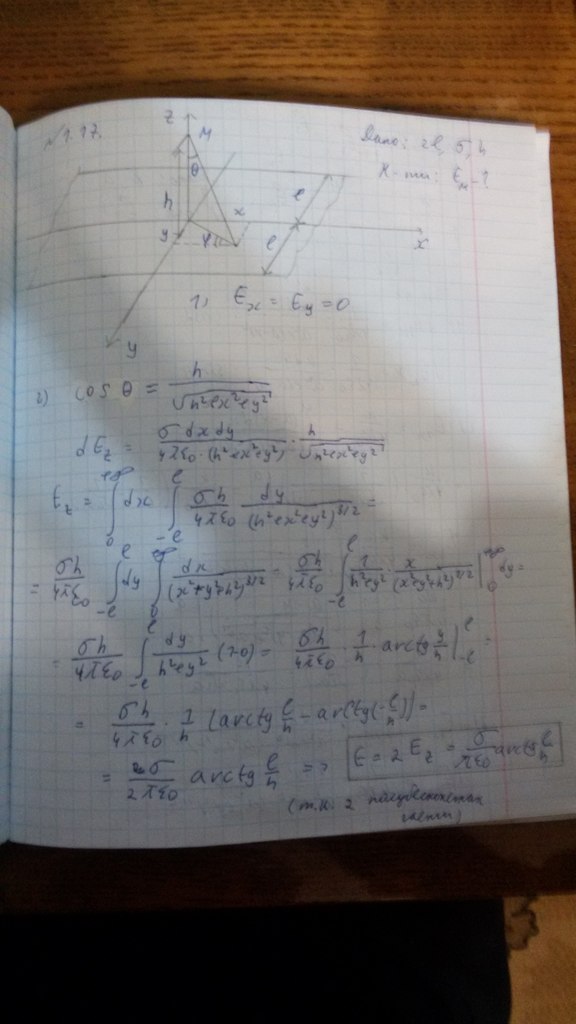 N 1.17.
Дано: 2l, σ, h
Н-ти: E_M - ?
z
M
θ
h
x
y
l
l
x
y
1) E_x = E_y = 0
2) cos θ = h / √(h²+x²+y²)
dE_z = σ dx dy / (4πε₀·(h²+x²+y²)) · h / √(h²+x²+y²)
E_z = ∫₀^{+∞} dx ∫_{-l}^{l} σh / (4πε₀) · dy / (h²+x²+y²)^{3/2} =
= σh / (4πε₀) ∫_{-l}^{l} dy ∫₀^{∞} dx / (x²+y²+h²)^{3/2} = σh / (4πε₀) ∫_{-l}^{l} 1 / (h²+y²) · x / (x²+y²+h²)^{1/2} |₀^{+∞} dy =
= σh / (4πε₀) ∫_{-l}^{l} dy / (h²+y²) (1-0) = σh / (4πε₀) · 1/h · arctg y/h |_{-l}^{l} =
= σh / (4πε₀) · 1/h (arctg l/h - arctg(-l/h)) =
= σ / (2πε₀) arctg l/h => E = 2E_z = σ / (πε₀) arctg l/h
(т.к. 2 полубесконечн